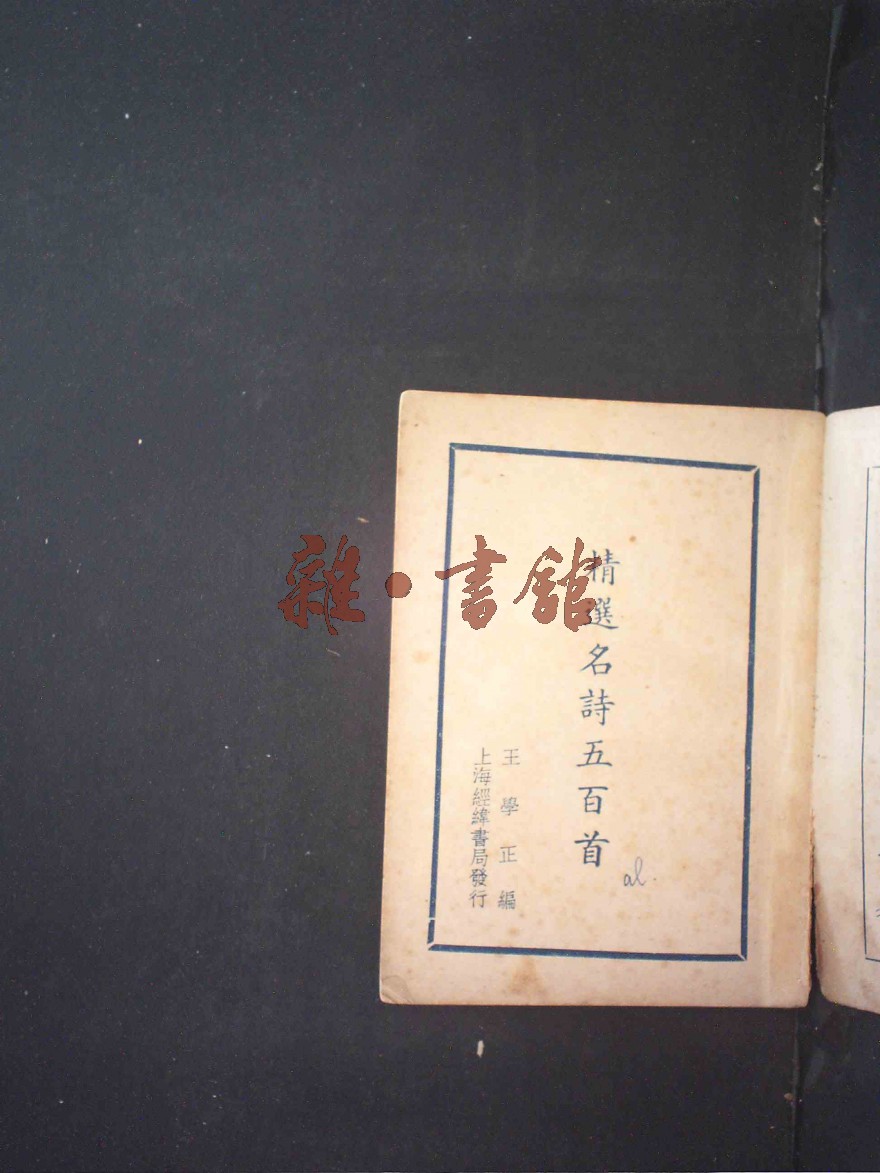 精選名詩五百首
王學正編
上海經緯書局發行
al.
雜·書館